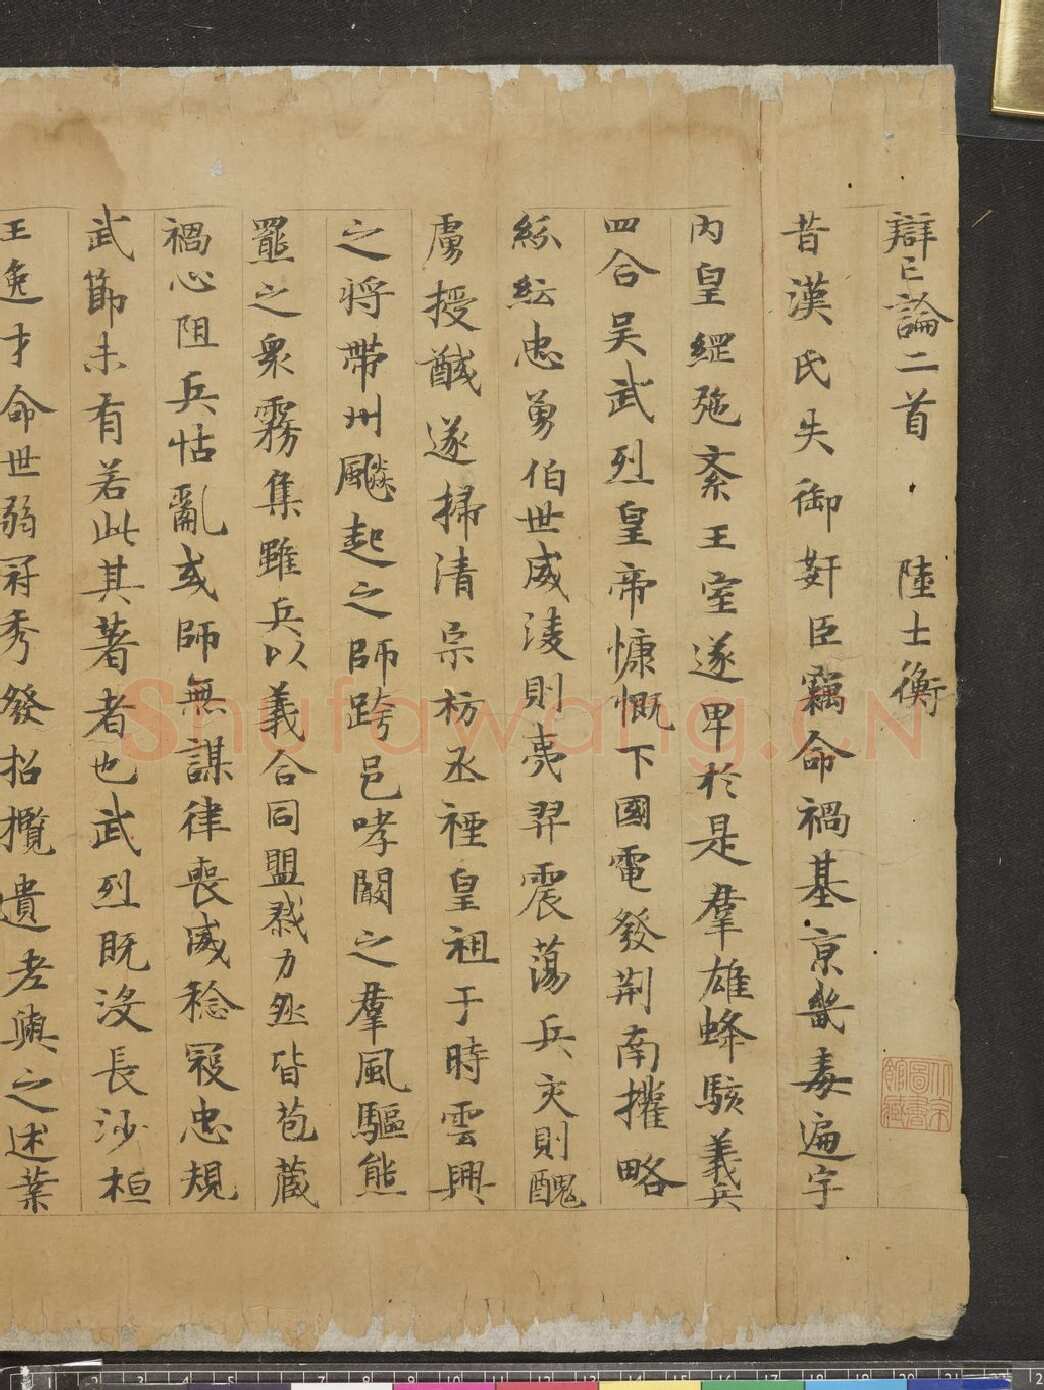 辯亡論二首 陸士衡
昔漢氏失御奸臣竊命禍基京畿毒遍宇
內皇綱弛紊王室遂卑於是羣雄蜂駭義兵
四合吳武烈皇帝慷慨下國電發荊南權略
紛紜忠勇伯世威淩則夷羿震蕩兵交則醜
虜授馘遂掃清宗枋丞禋皇祖于時雲興
之將帶州飈起之師跨邑哮闞之羣風驅熊
羆之衆霧集雖兵以義合同盟戮力然皆苞藏
禍心阻兵怙亂或師無謀律喪威稔寇忠規
武節未有若此其著者也武烈既沒長沙桓
王逸才命世弱冠秀發招攬遺老與之述業
Shufawang.CN